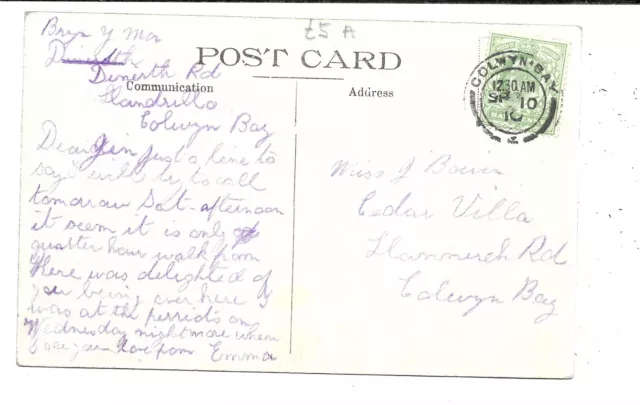 £5 A
Bryn Y Mor
Dinerth
Dinerth Rd
Llandrillo
Colwyn Bay
POST CARD
Communication
Address
COLWYN·BAY
12.30 AM
SP 10
10
Dear Jin just a line to
say I will try to call
tomorrow Sat-afternoon
it seem it is only a
quarter hour walk from
Here was delighted of
you being over here I
was at the on
Wednesday night more when
I see you love from Emma
Miss J Bowen
Cedar Villa
Rd
Colwyn Bay